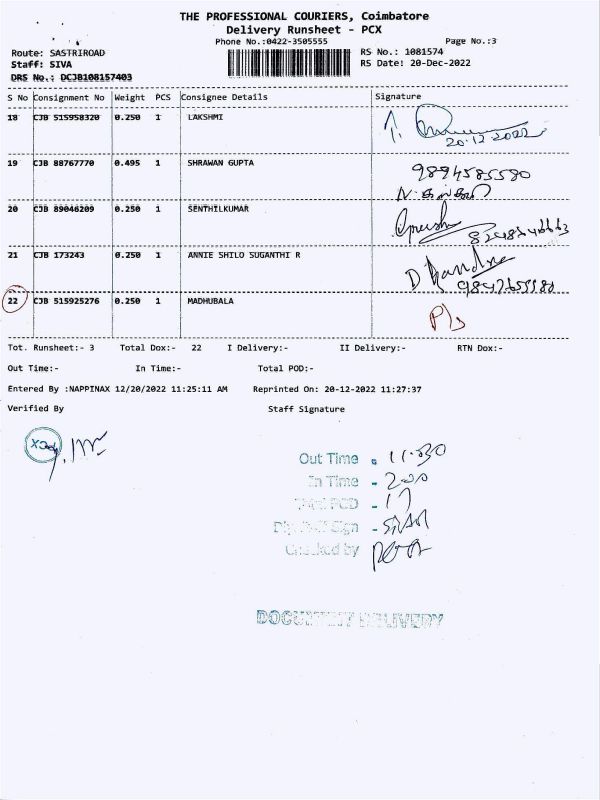 THE PROFESSIONAL COURIERS, Coimbatore
Delivery Runsheet - PCX
Phone No.:0422-3505555 Page No.:3
Route: SASTRIROAD RS No.: 1081574
Staff: SIVA RS Date: 20-Dec-2022
DRS No.: DCJB108157403
S No Consignment No Weight PCS Consignee Details Signature
18 CJB 515958320 0.250 1 LAKSHMI
20.12.2022
19 CJB 88767770 0.495 1 SHRAWAN GUPTA 9894585580
20 CJB 89046209 0.250 1 SENTHILKUMAR
21 CJB 173243 0.250 1 ANNIE SHILO SUGANTHI R
22 CJB 515925276 0.250 1 MADHUBALA
Tot. Runsheet:- 3 Total Dox:- 22 I Delivery:- II Delivery:- RTN Dox:-
Out Time:- In Time:- Total POD:-
Entered By :NAPPINAX 12/20/2022 11:25:11 AM Reprinted On: 20-12-2022 11:27:37
Verified By Staff Signature
Out Time - 11.030
In Time - 200
POD - 17
Sign - SIVA
Checked by
DOCUMENT DELIVERY